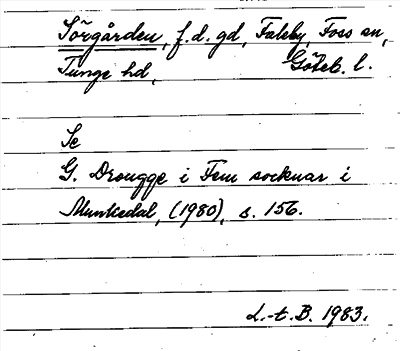 Sörgården, f.d. gd, Faleby, Foss sn,
Tunge hd, Göteb. l.
Se
G. Drougge i Fem socknar i
Munkedal, (1980), s. 156.
L.-t. B. 1983.